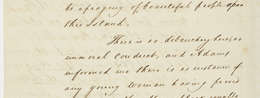 be a progeny of beautiful people upon
this Island.
There is no debauchery here, no
immoral conduct, and Adams
informed me there is no instance of
any young woman having proved